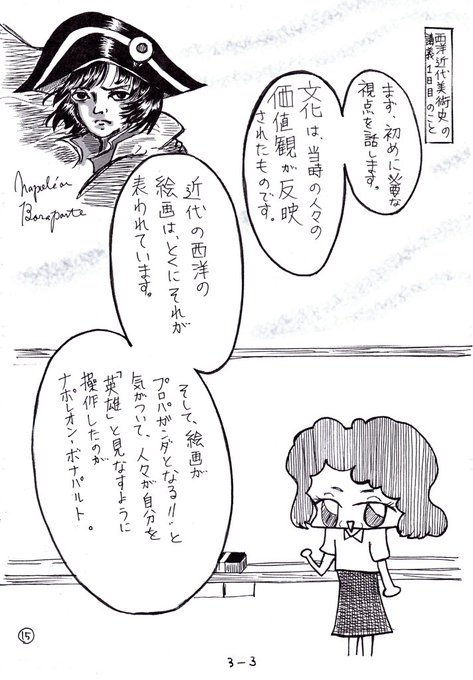 西洋近代美術史の
講義1日目のこと
まず、初めに必要な
視点を話します。
文化は、当時の人々の
価値観が反映
されたものです。
Napoléon
Bonaparte
近代の西洋の
絵画は、とくにそれが
表われています。
そして、絵画が
プロパガンダとなる!!と
気がついて、人々が自分を
「英雄」と見なすように
操作したのが
ナポレオン・ボナパルト。
15
3-3